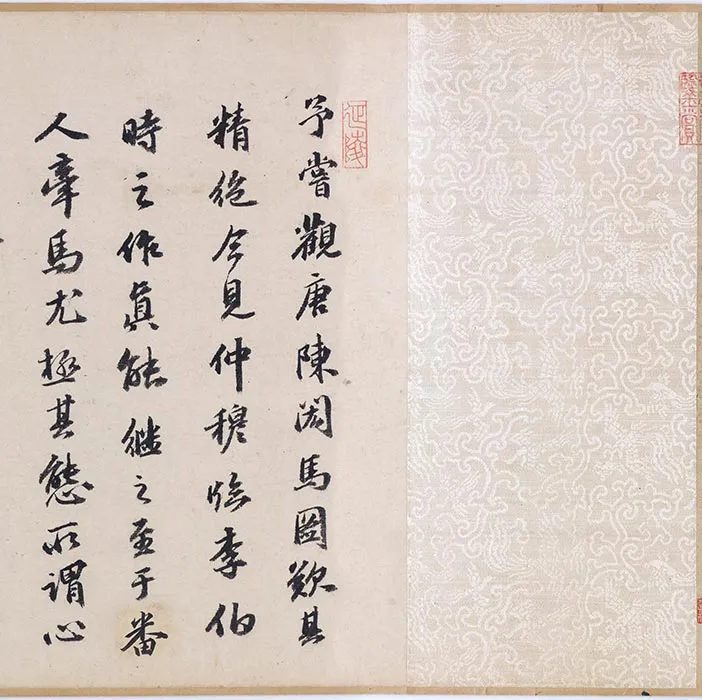 延陵
予嘗觀唐陳閎馬圖歎其
精絕今見仲穆臨李伯
時之作眞能繼之至于番
人牽馬尤極其態所謂心